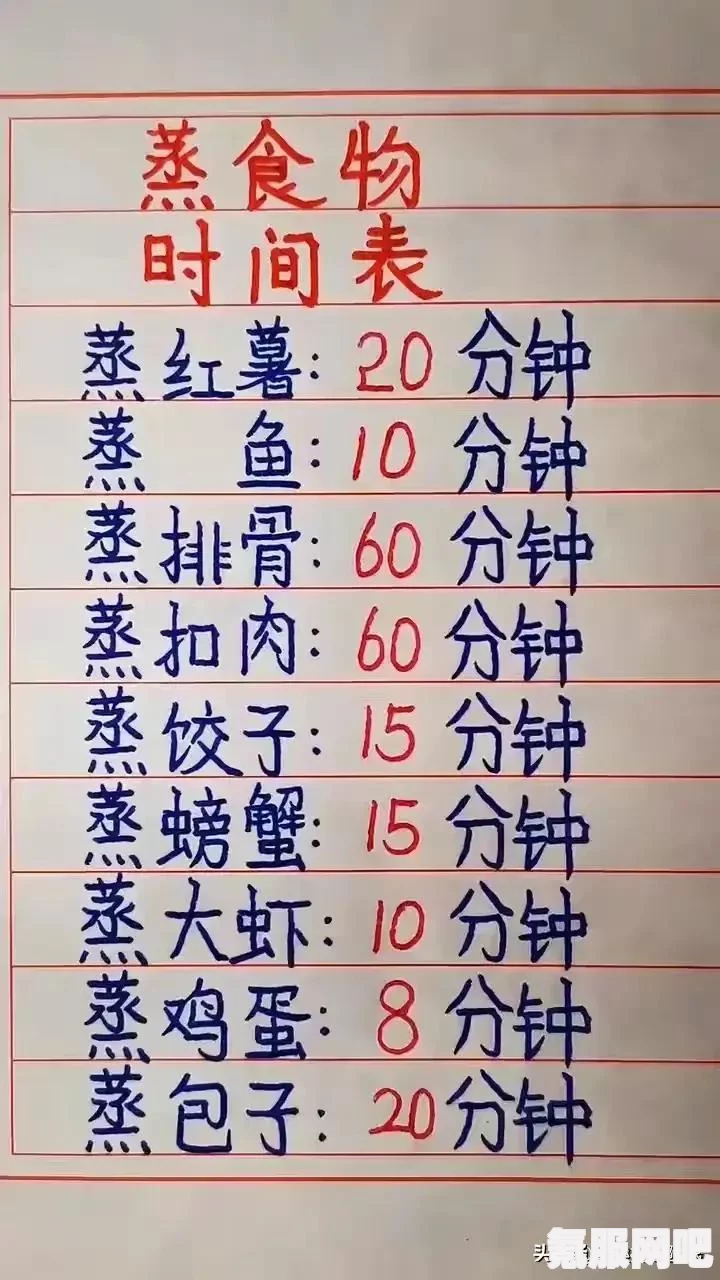 蒸食物
时间表
蒸红薯：20分钟
蒸 鱼：10分钟
蒸排骨：60分钟
蒸扣肉：60分钟
蒸饺子：15分钟
蒸螃蟹：15分钟
蒸大虾：10分钟
蒸鸡蛋：8分钟
蒸包子：20分钟
氪服网吧